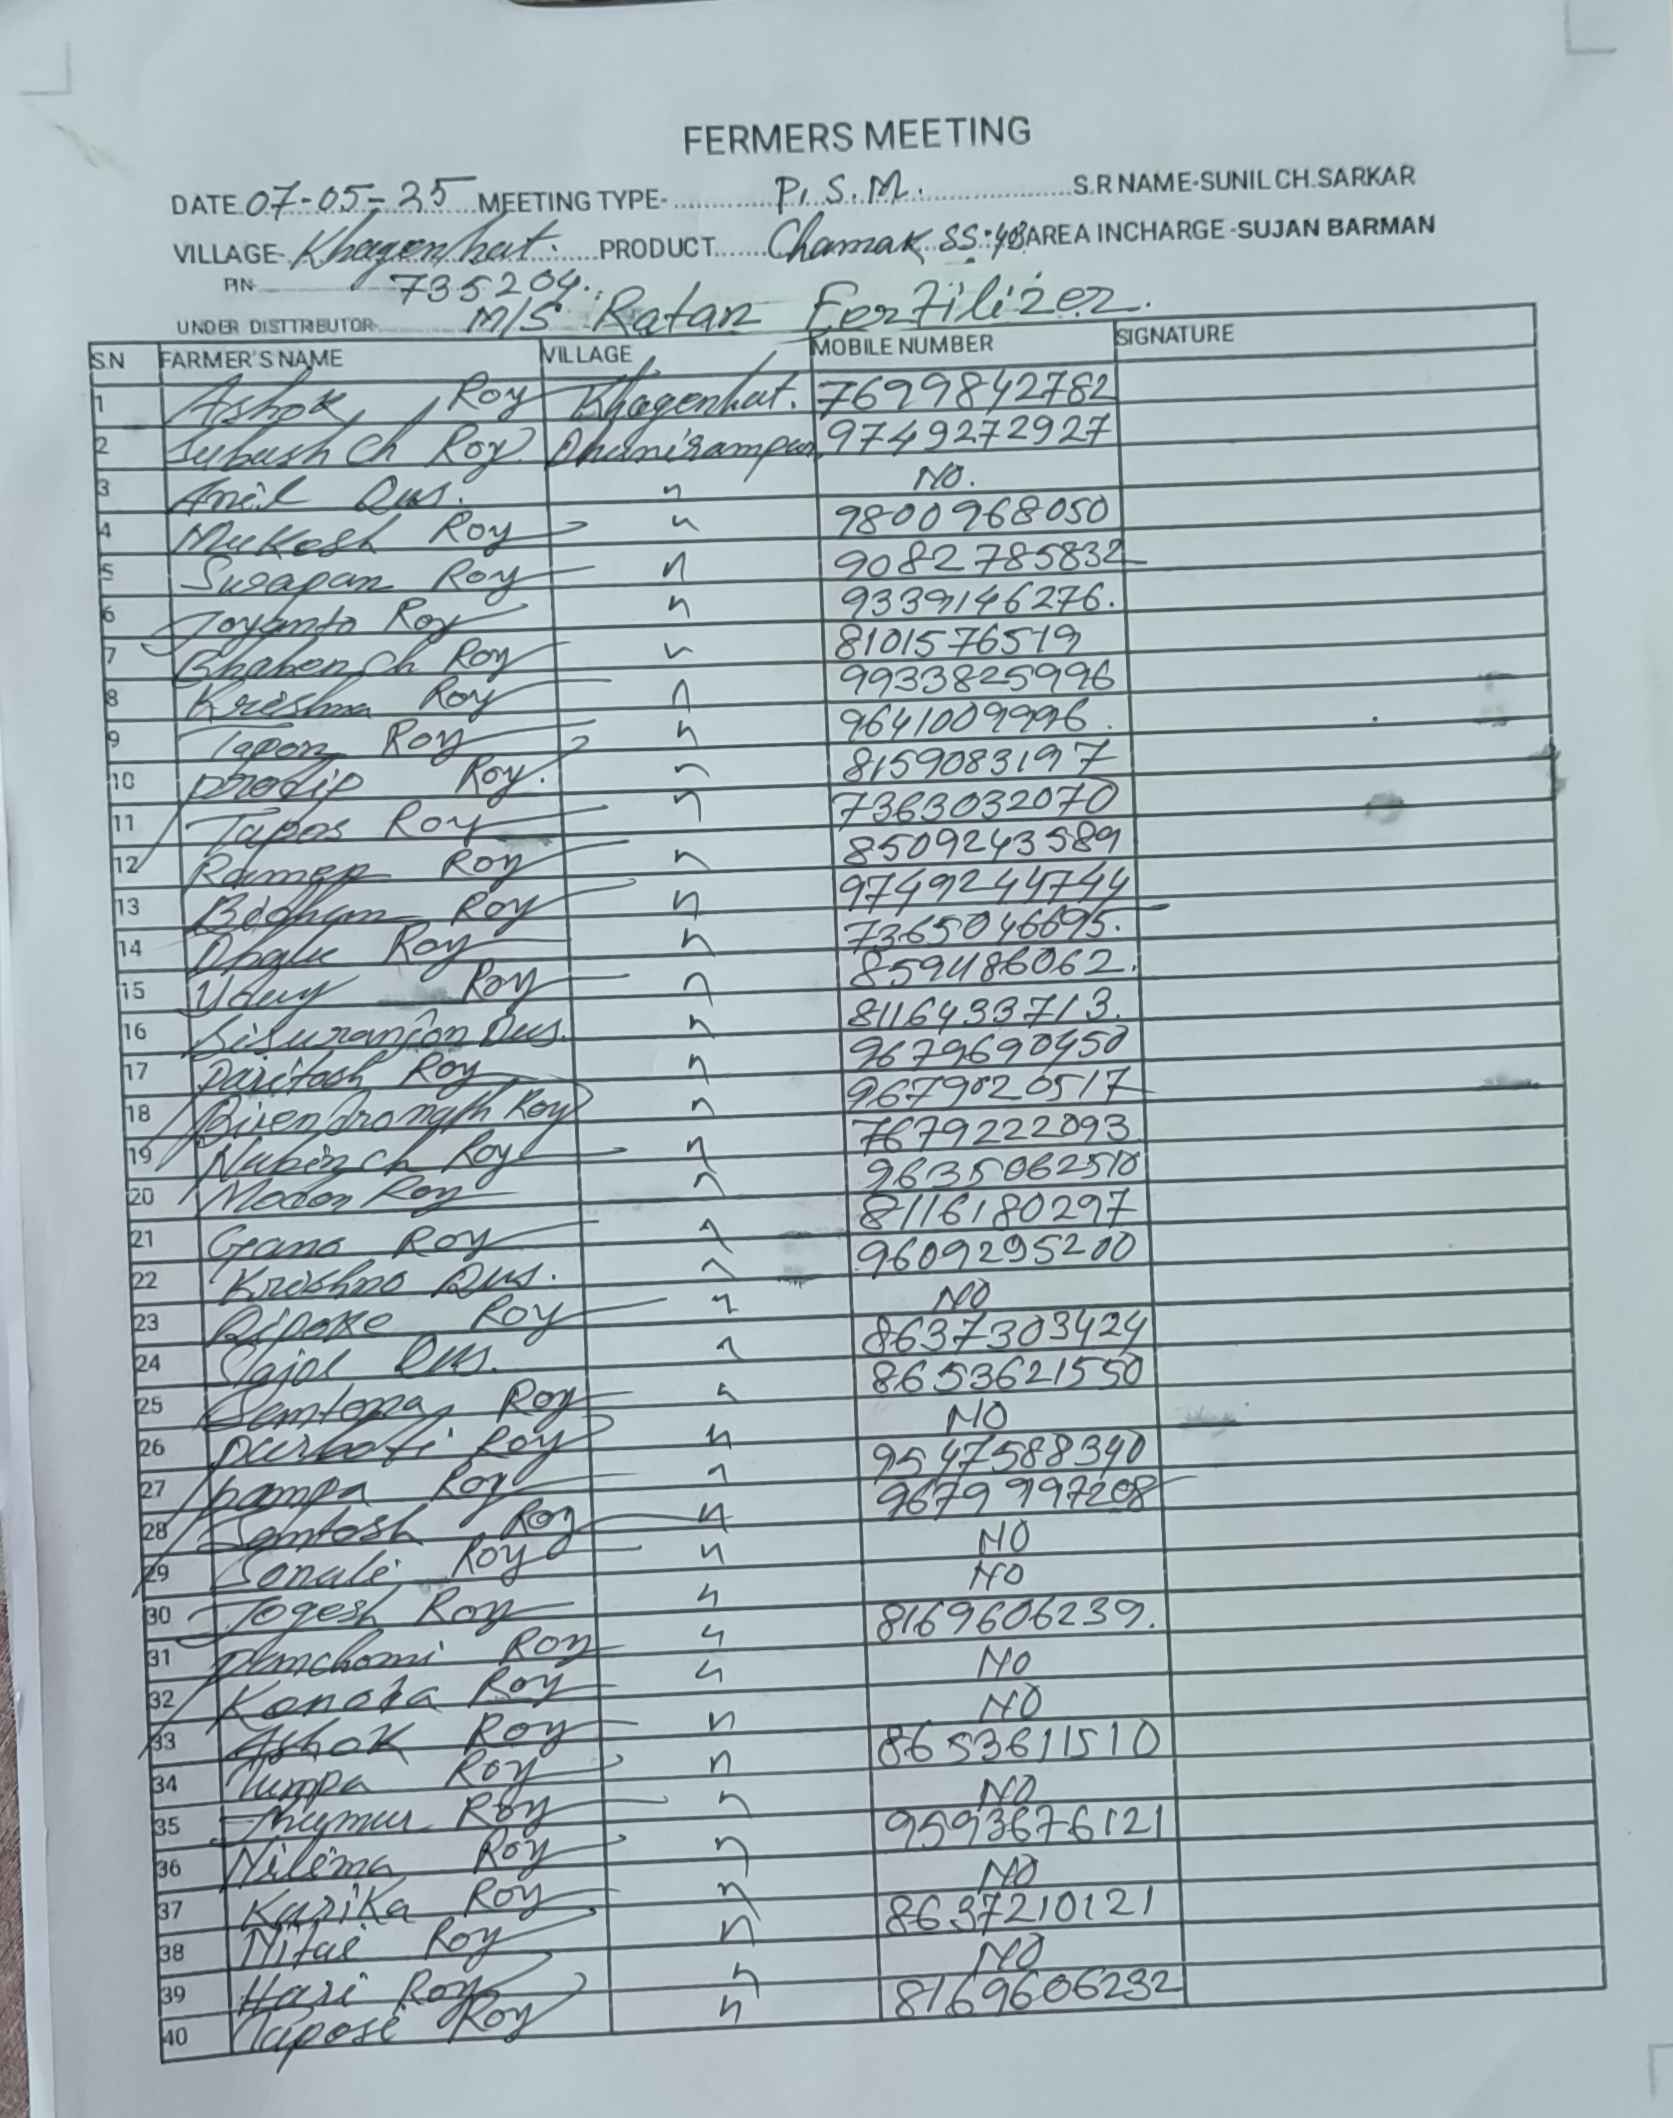 FERMERS MEETING
DATE 07-05-25 MEETING TYPE- P.S.M. S.R NAME-SUNIL CH.SARKAR
VILLAGE- Khagenhat. PRODUCT Chamak SS:40 AREA INCHARGE -SUJAN BARMAN
PIN 735204.
UNDER DISTTRIBUTOR- M/S Ratan Fertilizer.
S.N FARMER'S NAME VILLAGE MOBILE NUMBER SIGNATURE
1 Ashok Roy Khagenhat. 7699842782
2 Subash Ch Roy Dhanirampur 9749272927
3 Anil Das. " NO.
4 Mukesh Roy " 9800968050
5 Swapan Roy " 9082785832
6 Joyanto Roy " 9339146276.
7 Bhaben Ch Roy " 8101576519
8 Krishna Roy " 9933825996
9 Tapon Roy " 9641009996.
10 Prodip Roy. " 8159083197
11 Tapos Roy " 7363032070
12 Ramen Roy " 8509243589
13 Roy " 9749244744
14 Roy " 7365046695.
15 Uday Roy " 859486062.
16 Das. " 8116433713.
17 Paritosh Roy " 9679690450
18 Birendranath Roy " 9679020517
19 Nabin ch Roy " 7679222093
20 Modon Roy " 9635062510
21 Gano Roy " 8116180297
22 Krishno Das. " 9609295200
23 Dipoke Roy " NO
24 Sajol Das. " 8637303424
25 Roy " 8653621550
26 Parboti Roy " NO
27 Pampa Roy " 9547588340
28 Santosh Roy " 9679997208
29 Sonali Roy " NO
30 Jogesh Roy " NO
31 Panchomi Roy " 8169606239.
32 Roy " NO
33 Ashok Roy " NO
34 Tumpa Roy " 8653611510
35 Jhumur Roy " NO
36 Nilima Roy " 9593676121
37 Karika Roy " NO
38 Nitai Roy " 8637210121
39 Hari Roy " NO
40 Taposi Roy " 8169606232